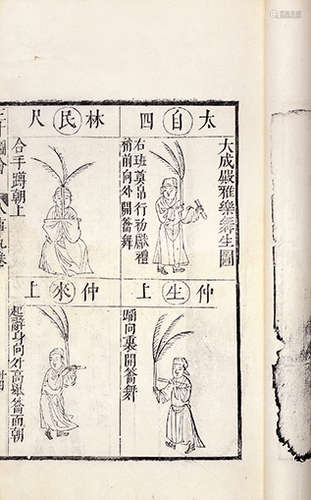 太自四
大成殿雅樂舞生圖
右班奠帛行初獻禮
稍前向外開籥舞
仲生上
蹈向裏開籥舞
林民尺
合手蹲朝上
仲來上
起辭身向外高舉籥面朝
三才圖會